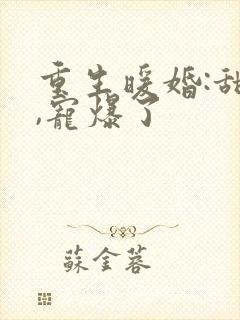 重生暖婚:甜
,寵爆了
蘇金蓉